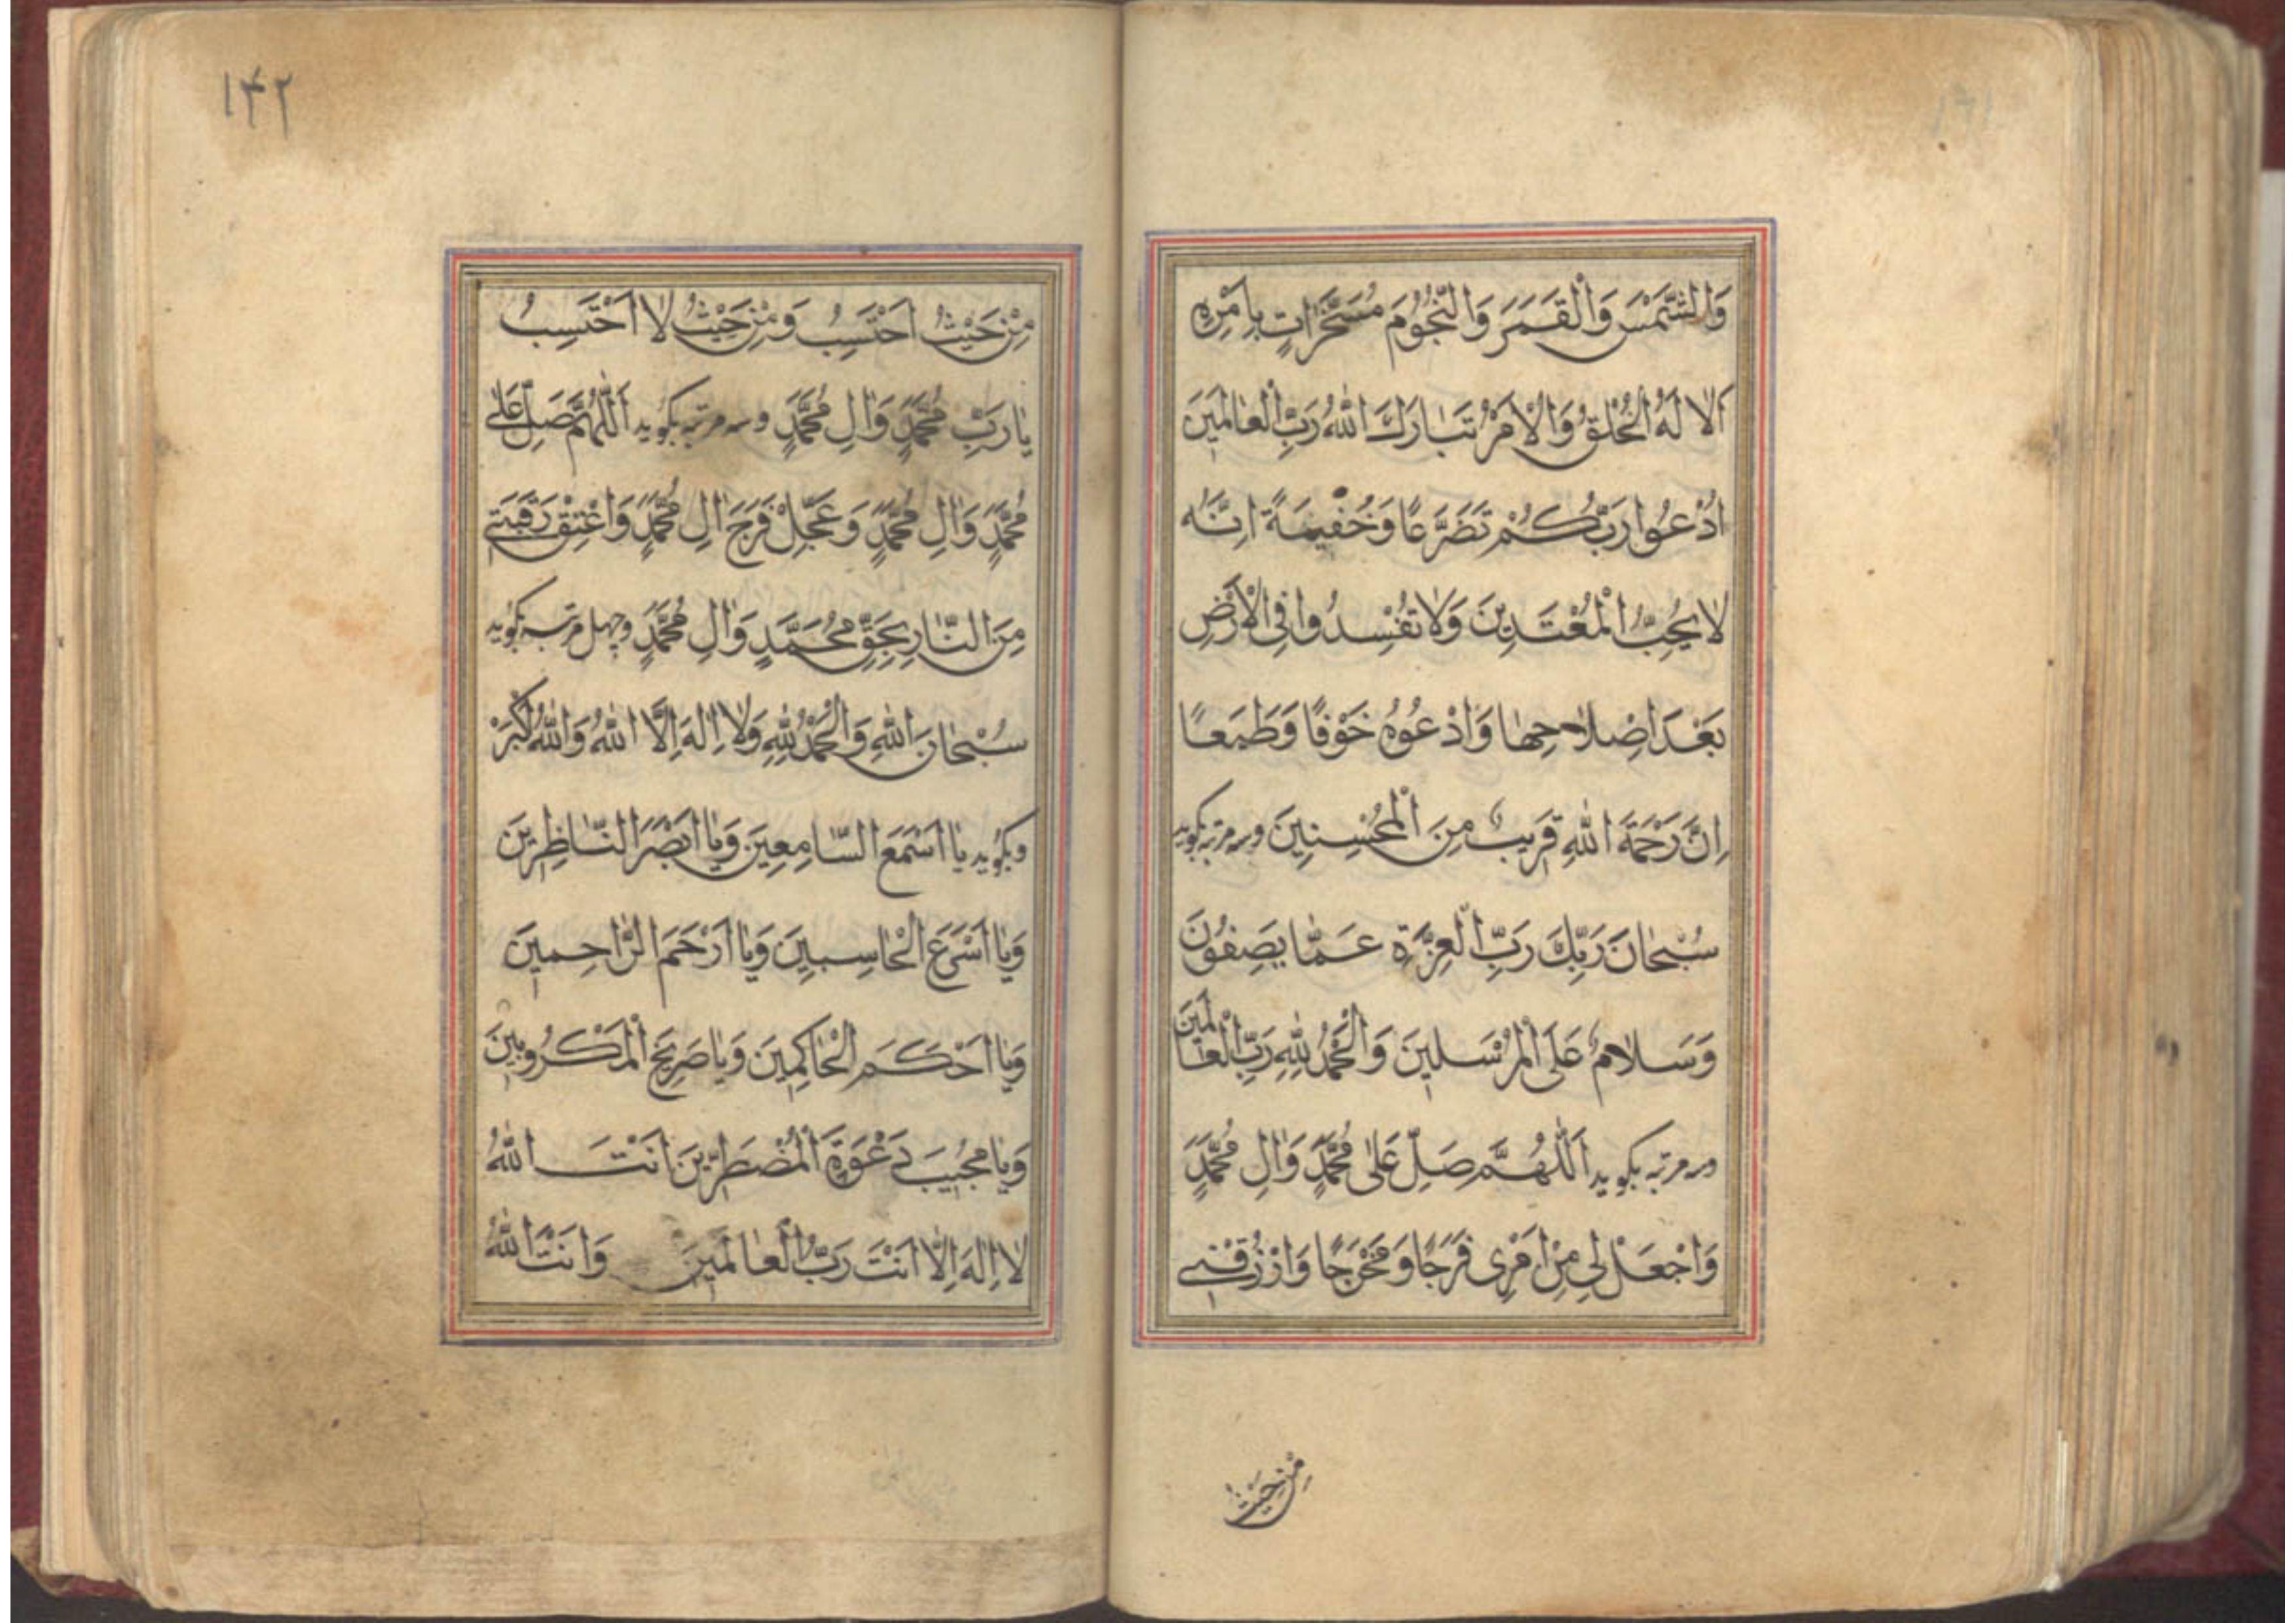 ١٤١
وَالشَّمْسَ وَالْقَمَرَ وَالنُّجُومَ مُسَخَّرَاتٍ بِاَمْرِهِ
اَلَا لَهُ الْخَلْقُ وَالْاَمْرُ تَبَارَكَ اللّٰهُ رَبُّ الْعَالَمِينَ
اُدْعُوا رَبَّكُمْ تَضَرُّعًا وَخُفْيَةً اِنَّهُ
لَا يُحِبُّ الْمُعْتَدِينَ وَلَا تُفْسِدُوا فِى الْاَرْضِ
بَعْدَ اِصْلَاحِهَا وَادْعُوهُ خَوْفًا وَطَمَعًا
اِنَّ رَحْمَةَ اللّٰهِ قَرِيبٌ مِنَ الْمُحْسِنِينَ وسه مرتبه بکوید
سُبْحَانَ رَبِّكَ رَبِّ الْعِزَّةِ عَمَّا يَصِفُونَ
وَسَلَامٌ عَلَى الْمُرْسَلِينَ وَالْحَمْدُ لِلّٰهِ رَبِّ الْعَالَمِينَ
وسه مرتبه بکوید اَللّٰهُمَّ صَلِّ عَلٰى مُحَمَّدٍ وَاٰلِ مُحَمَّدٍ
وَاجْعَلْ لِى مِنْ اَمْرِى فَرَجًا وَمَخْرَجًا وَارْزُقْنِى
مِنْ حَيْثُ
١٤٢
مِنْ حَيْثُ اَحْتَسِبُ وَمِنْ حَيْثُ لَا اَحْتَسِبُ
يَا رَبَّ مُحَمَّدٍ وَاٰلِ مُحَمَّدٍ وسه مرتبه بکوید اَللّٰهُمَّ صَلِّ عَلٰى
مُحَمَّدٍ وَاٰلِ مُحَمَّدٍ وَعَجِّلْ فَرَجَ اٰلِ مُحَمَّدٍ وَاعْتِقْ رَقَبَتِى
مِنَ النَّارِ بِحَقِّ مُحَمَّدٍ وَاٰلِ مُحَمَّدٍ وچهل مرتبه بکوید
سُبْحَانَ اللّٰهِ وَالْحَمْدُ لِلّٰهِ وَلَا اِلٰهَ اِلَّا اللّٰهُ وَاللّٰهُ اَكْبَرُ
وبکوید يَا اَسْمَعَ السَّامِعِينَ وَيَا اَبْصَرَ النَّاظِرِينَ
وَيَا اَسْرَعَ الْحَاسِبِينَ وَيَا اَرْحَمَ الرَّاحِمِينَ
وَيَا اَحْكَمَ الْحَاكِمِينَ وَيَا صَرِيخَ الْمَكْرُوبِينَ
وَيَا مُجِيبَ دَعْوَةِ الْمُضْطَرِّينَ اَنْتَ اللّٰهُ
لَا اِلٰهَ اِلَّا اَنْتَ رَبُّ الْعَالَمِينَ وَاَنْتَ اللّٰهُ